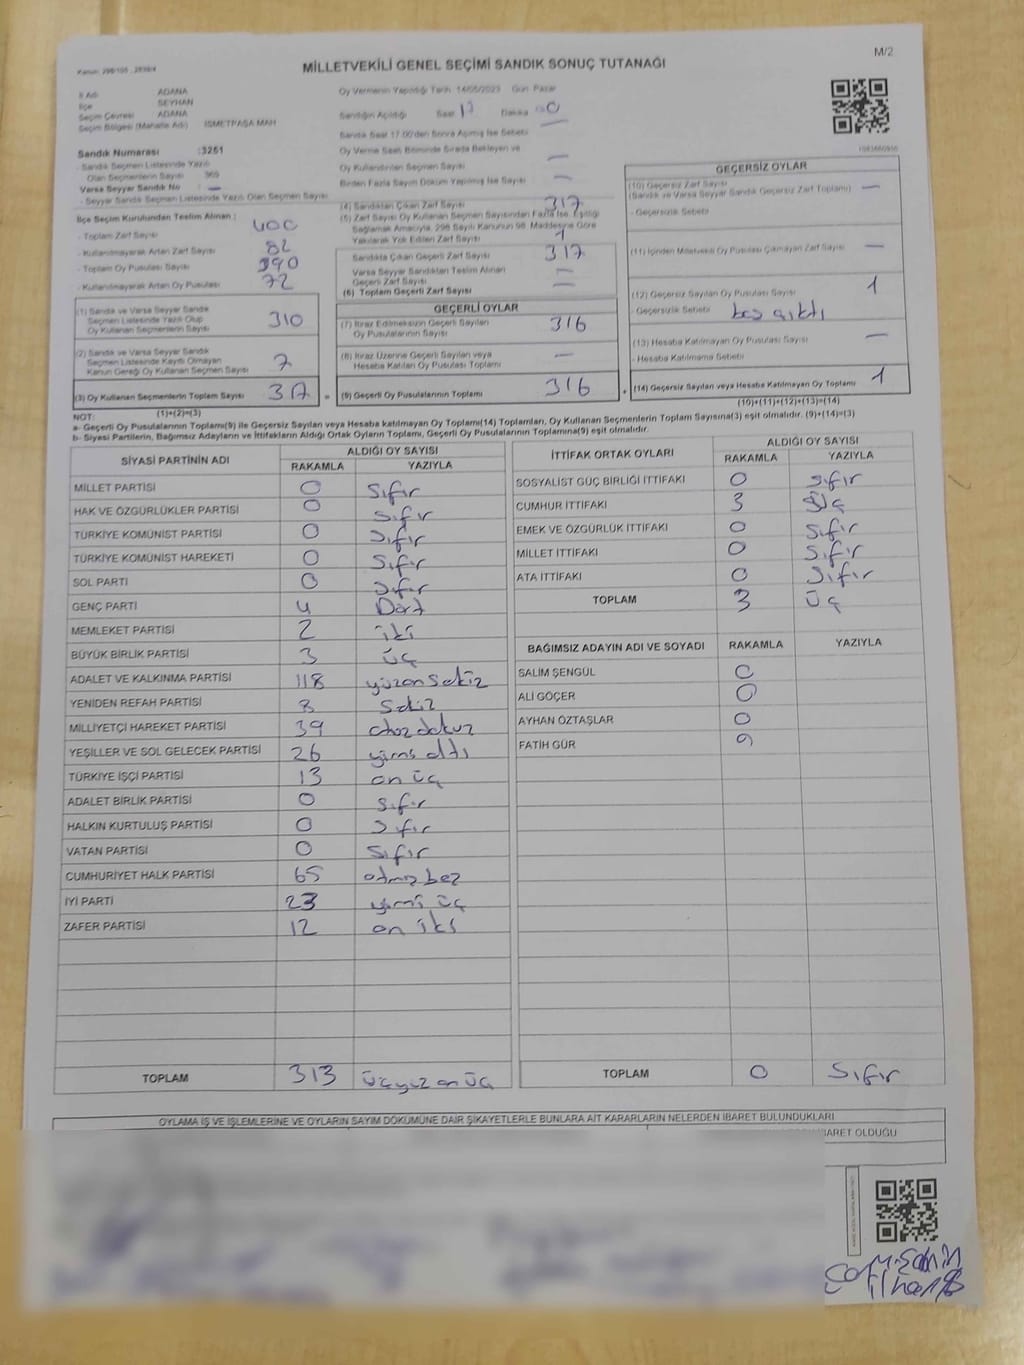 M/2
Kanun: 298/105 , 2839/4
MİLLETVEKİLİ GENEL SEÇİMİ SANDIK SONUÇ TUTANAĞI
İl Adı ADANA
İlçe SEYHAN
Seçim Çevresi ADANA
Seçim Bölgesi (Mahalle Adı) İSMETPAŞA MAH
Sandık Numarası :3251
- Sandık Seçmen Listesinde Yazılı
Olan Seçmen Sayısı 365
Varsa Seyyar Sandık No : —
- Seyyar Sandık Seçmen Listesinde Yazılı Olan Seçmen Sayısı
İlçe Seçim Kurulundan Teslim Alınan :
- Toplam Zarf Sayısı 400
- Kullanılmayarak Artan Zarf Sayısı 82
- Toplam Oy Pusulası Sayısı 390
- Kullanılmayarak Artan Oy Pusulası 72
(1) Sandık ve Varsa Seyyar Sandık
Seçmen Listesinde Yazılı Olup
Oy Kullanan Seçmenlerin Sayısı 310
(2) Sandık ve Varsa Seyyar Sandık
Seçmen Listesinde Kayıtlı Olmayan
Kanun Gereği Oy Kullanan Seçmen Sayısı 7
(3) Oy Kullanan Seçmenlerin Toplam Sayısı 317
(1)+(2)=(3)
Oy Vermenin Yapıldığı Tarih 14/05/2023 Gün Pazar
Sandığın Açıldığı Saat Dakika
Sandık Saat 17.00'den Sonra Açılmış İse Sebebi —
Oy Verme Saati Bitiminde Sırada Bekleyen ve
Oy Kullandırılan Seçmen Sayısı —
Birden Fazla Sayım Döküm Yapılmış İse Sayısı —
(4) Sandıktan Çıkan Zarf Sayısı 317
(5) Zarf Sayısı Oy Kullanan Seçmen Sayısından Fazla İse, Eşitliği
Sağlamak Amacıyla, 298 Sayılı Kanunun 98. Maddesine Göre
Yakılarak Yok Edilen Zarf Sayısı 1
Sandıkta Çıkan Geçerli Zarf Sayısı 317
Varsa Seyyar Sandıktan Teslim Alınan
Geçerli Zarf Sayısı —
(6) Toplam Geçerli Zarf Sayısı —
GEÇERLİ OYLAR
(7) İtiraz Edilmeksizin Geçerli Sayılan
Oy Pusulalarının Sayısı 316
(8) İtiraz Üzerine Geçerli Sayılan veya
Hesaba Katılan Oy Pusulası Toplamı —
= (9) Geçerli Oy Pusulalarının Toplamı 316 +
GEÇERSİZ OYLAR
(10) Geçersiz Zarf Sayısı
(Sandık ve Varsa Seyyar Sandık Geçersiz Zarf Toplamı) —
- Geçersizlik Sebebi
(11) İçinden Milletvekili Oy Pusulası Çıkmayan Zarf Sayısı —
(12) Geçersiz Sayılan Oy Pusulası Sayısı 1
- Geçersizlik Sebebi boş çıktı
(13) Hesaba Katılmayan Oy Pusulası Sayısı —
- Hesaba Katılmama Sebebi
(14) Geçersiz Sayılan veya Hesaba Katılmayan Oy Toplamı 1
(10)+(11)+(12)+(13)=(14)
NOT:
a- Geçerli Oy Pusulalarının Toplamı(9) ile Geçersiz Sayılan veya Hesaba Katılmayan Oy Toplamı(14) Toplamları, Oy Kullanan Seçmenlerin Toplam Sayısına(3) eşit olmalıdır. (9)+(14)=(3)
b- Siyasi Partilerin, Bağımsız Adayların ve İttifakların Aldığı Ortak Oyların Toplamı, Geçerli Oy Pusulalarının Toplamına(9) eşit olmalıdır.
SİYASİ PARTİNİN ADI ALDIĞI OY SAYISI
RAKAMLA YAZIYLA
MİLLET PARTİSİ 0 sıfır
HAK VE ÖZGÜRLÜKLER PARTİSİ 0 sıfır
TÜRKİYE KOMÜNİST PARTİSİ 0 sıfır
TÜRKİYE KOMÜNİST HAREKETİ 0 sıfır
SOL PARTİ 0 sıfır
GENÇ PARTİ 4 Dört
MEMLEKET PARTİSİ 2 iki
BÜYÜK BİRLİK PARTİSİ 3 üç
ADALET VE KALKINMA PARTİSİ 118 yüzonsekiz
YENİDEN REFAH PARTİSİ 8 sekiz
MİLLİYETÇİ HAREKET PARTİSİ 39 otuzdokuz
YEŞİLLER VE SOL GELECEK PARTİSİ 26 yirmi altı
TÜRKİYE İŞÇİ PARTİSİ 13 on üç
ADALET BİRLİK PARTİSİ 0 sıfır
HALKIN KURTULUŞ PARTİSİ 0 sıfır
VATAN PARTİSİ 0 sıfır
CUMHURİYET HALK PARTİSİ 65 atmış beş
İYİ PARTİ 23 yirmi üç
ZAFER PARTİSİ 12 on iki
TOPLAM 313 üçyüz on üç
İTTİFAK ORTAK OYLARI ALDIĞI OY SAYISI
RAKAMLA YAZIYLA
SOSYALİST GÜÇ BİRLİĞİ İTTİFAKI 0 sıfır
CUMHUR İTTİFAKI 3 üç
EMEK VE ÖZGÜRLÜK İTTİFAKI 0 sıfır
MİLLET İTTİFAKI 0 sıfır
ATA İTTİFAKI 0 sıfır
TOPLAM 3 üç
BAĞIMSIZ ADAYIN ADI VE SOYADI RAKAMLA YAZIYLA
SALİM ŞENGÜL 0
ALİ GÖÇER 0
AYHAN ÖZTAŞLAR 0
FATİH GÜR 0
TOPLAM 0 sıfır
OYLAMA İŞ VE İŞLEMLERİNE VE OYLARIN SAYIM DÖKÜMÜNE DAİR ŞİKAYETLERLE BUNLARA AİT KARARLARIN NELERDEN İBARET BULUNDUKLARI
İBARET OLDUĞU